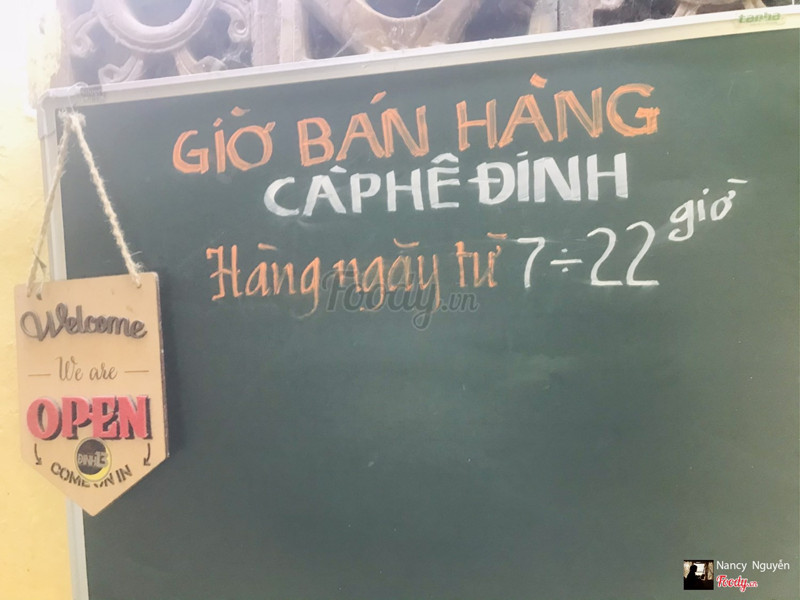 GIỜ BÁN HÀNG
CÀPHÊ ĐINH
Hàng ngày từ 7÷22 giờ
Foody.vn
Welcome
We are
OPEN
ĐINH
COME ON IN
Nancy Nguyễn
Foody.vn